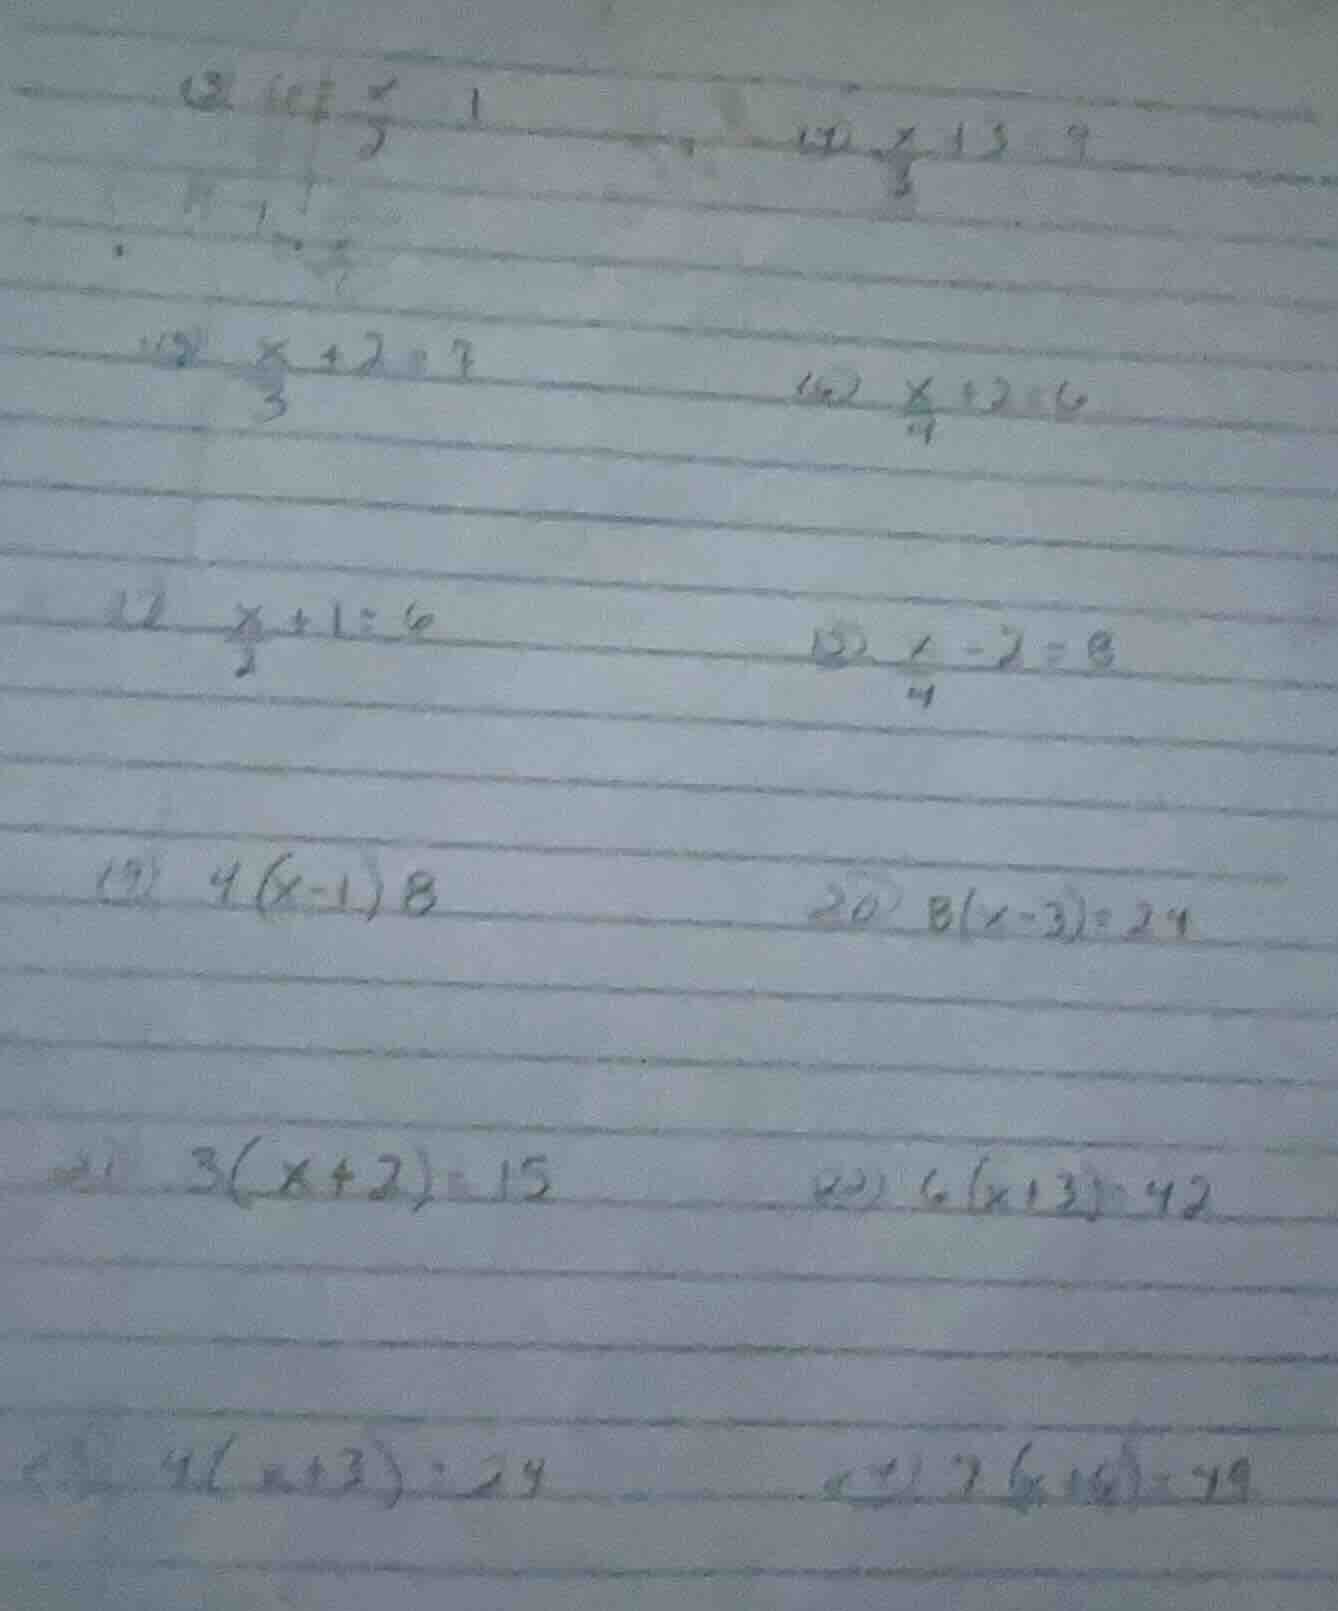 13) x/2 1
14) x/3 + 3 9
15) x/3 + 2 = 7
16) x/4 + 2 = 6
17 x/2 + 1 = 6
18) x/4 - 2 = 8
19) 4(x-1) 8
20) 8(x-3) = 24
21) 3(x+2) = 15
22) 6(x+3) = 42
4(x+3) = 24
24) 7(x+6) = 49